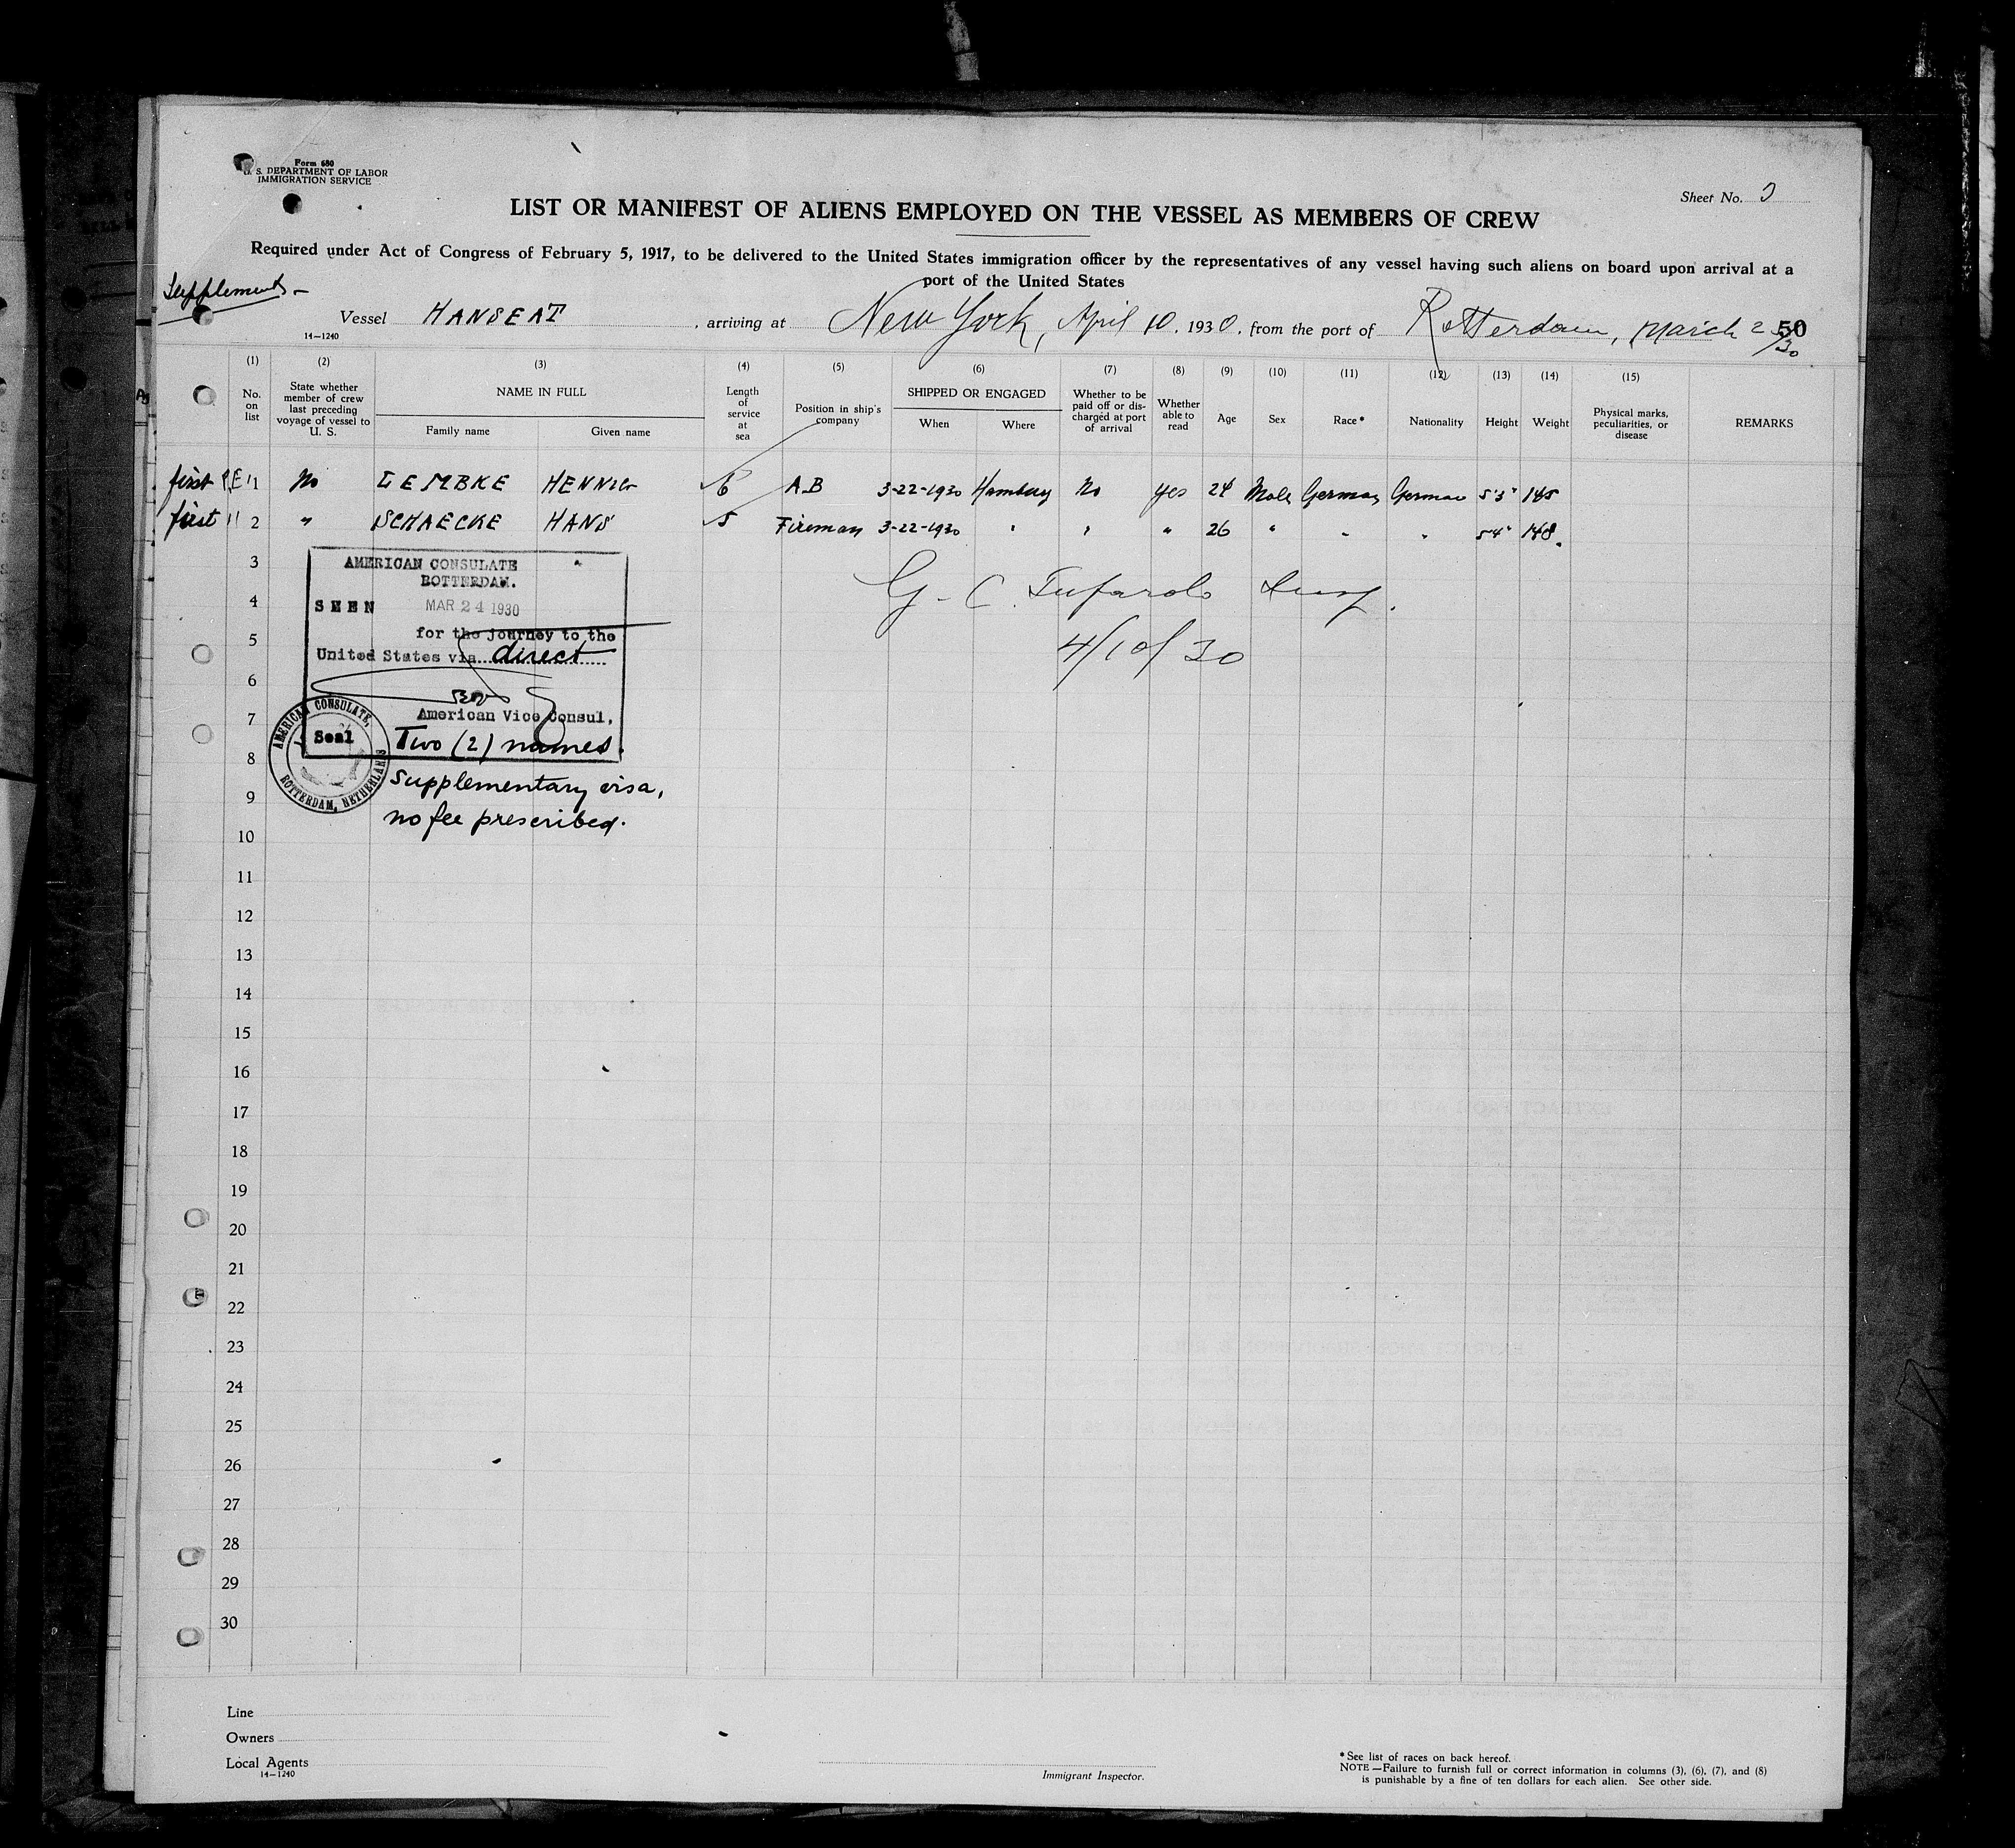 Form 680
U. S. DEPARTMENT OF LABOR
IMMIGRATION SERVICE
Sheet No.
LIST OR MANIFEST OF ALIENS EMPLOYED ON THE VESSEL AS MEMBERS OF CREW
Required under Act of Congress of February 5, 1917, to be delivered to the United States immigration officer by the representatives of any vessel having such aliens on board upon arrival at a
port of the United States
Supplement
Vessel HANSEAT, arriving at New York, April 10, 1930, from the port of Rotterdam, March
50
14—1240
(1) (2) (3) (4) (5) (6) (7) (8) (9) (10) (11) (12) (13) (14) (15)
No. on list
State whether member of crew last preceding voyage of vessel to U. S.
NAME IN FULL
Family name
Given name
Length of service at sea
Position in ship's company
SHIPPED OR ENGAGED
When
Where
Whether to be paid off or discharged at port of arrival
Whether able to read
Age
Sex
Race*
Nationality
Height
Weight
Physical marks, peculiarities, or disease
REMARKS
first 1 No HENNIG 6 A.B 3-22-1930 Hamburg No yes 24 Male German German 5'3" 145
first 2 " SCHAECKE HANS 5 Fireman 3-22-1930 " " " 26 " " " 5'4" 148
3
4
5
6
7
8
9
10
11
12
13
14
15
16
17
18
19
20
21
22
23
24
25
26
27
28
29
30
AMERICAN CONSULATE
ROTTERDAM.
SEEN MAR 24 1930
for the journey to the
United States via direct
American Vice Consul,
Seal
AMERICAN CONSULATE,
ROTTERDAM, NETHERLANDS
Two (2) names.
Supplementary visa,
no fee prescribed.
G. C. Insp.
4/10/30
Line
Owners
Local Agents
14—1240
Immigrant Inspector.
* See list of races on back hereof.
NOTE.—Failure to furnish full or correct information in columns (3), (6), (7), and (8)
is punishable by a fine of ten dollars for each alien. See other side.